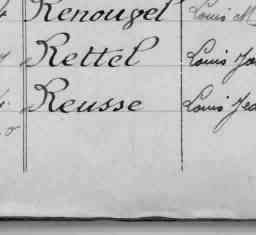 Renougel Louis M
Rettel Louis
Reusse Louis Jea